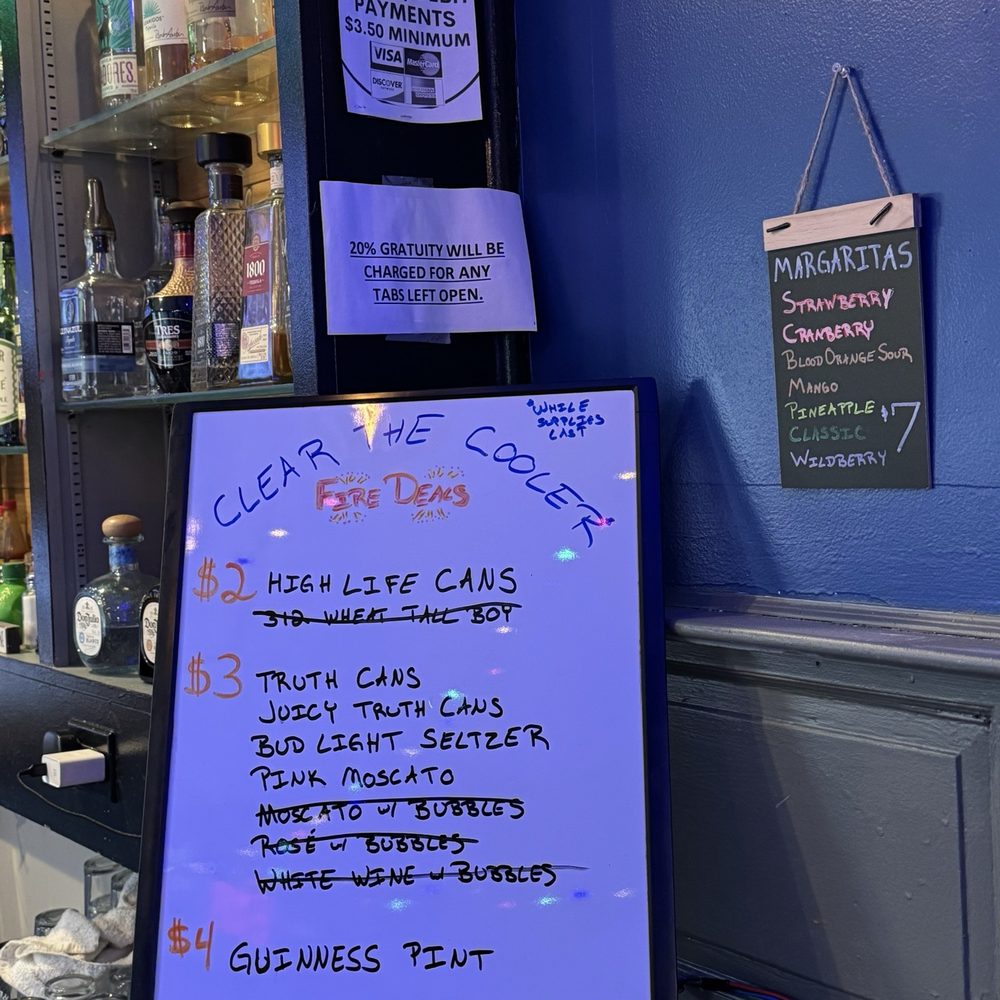 PAYMENTS
$3.50 MINIMUM
VISA MasterCard
DISCOVER
20% GRATUITY WILL BE
CHARGED FOR ANY
TABS LEFT OPEN.
MARGARITAS
STRAWBERRY
CRANBERRY
BLOOD ORANGE SOUR
MANGO
PINEAPPLE
CLASSIC
WILDBERRY
$7
*WHILE
SUPPLIES
LAST
CLEAR THE COOLER*
FIRE DEALS
$2 HIGH LIFE CANS
312 WHEAT TALL BOY
$3 TRUTH CANS
JUICY TRUTH CANS
BUD LIGHT SELTZER
PINK MOSCATO
MOSCATO w/ BUBBLES
ROSÉ w/ BUBBLES
WHITE WINE w BUBBLES
$4 GUINNESS PINT
1800
TRES
Don Julio